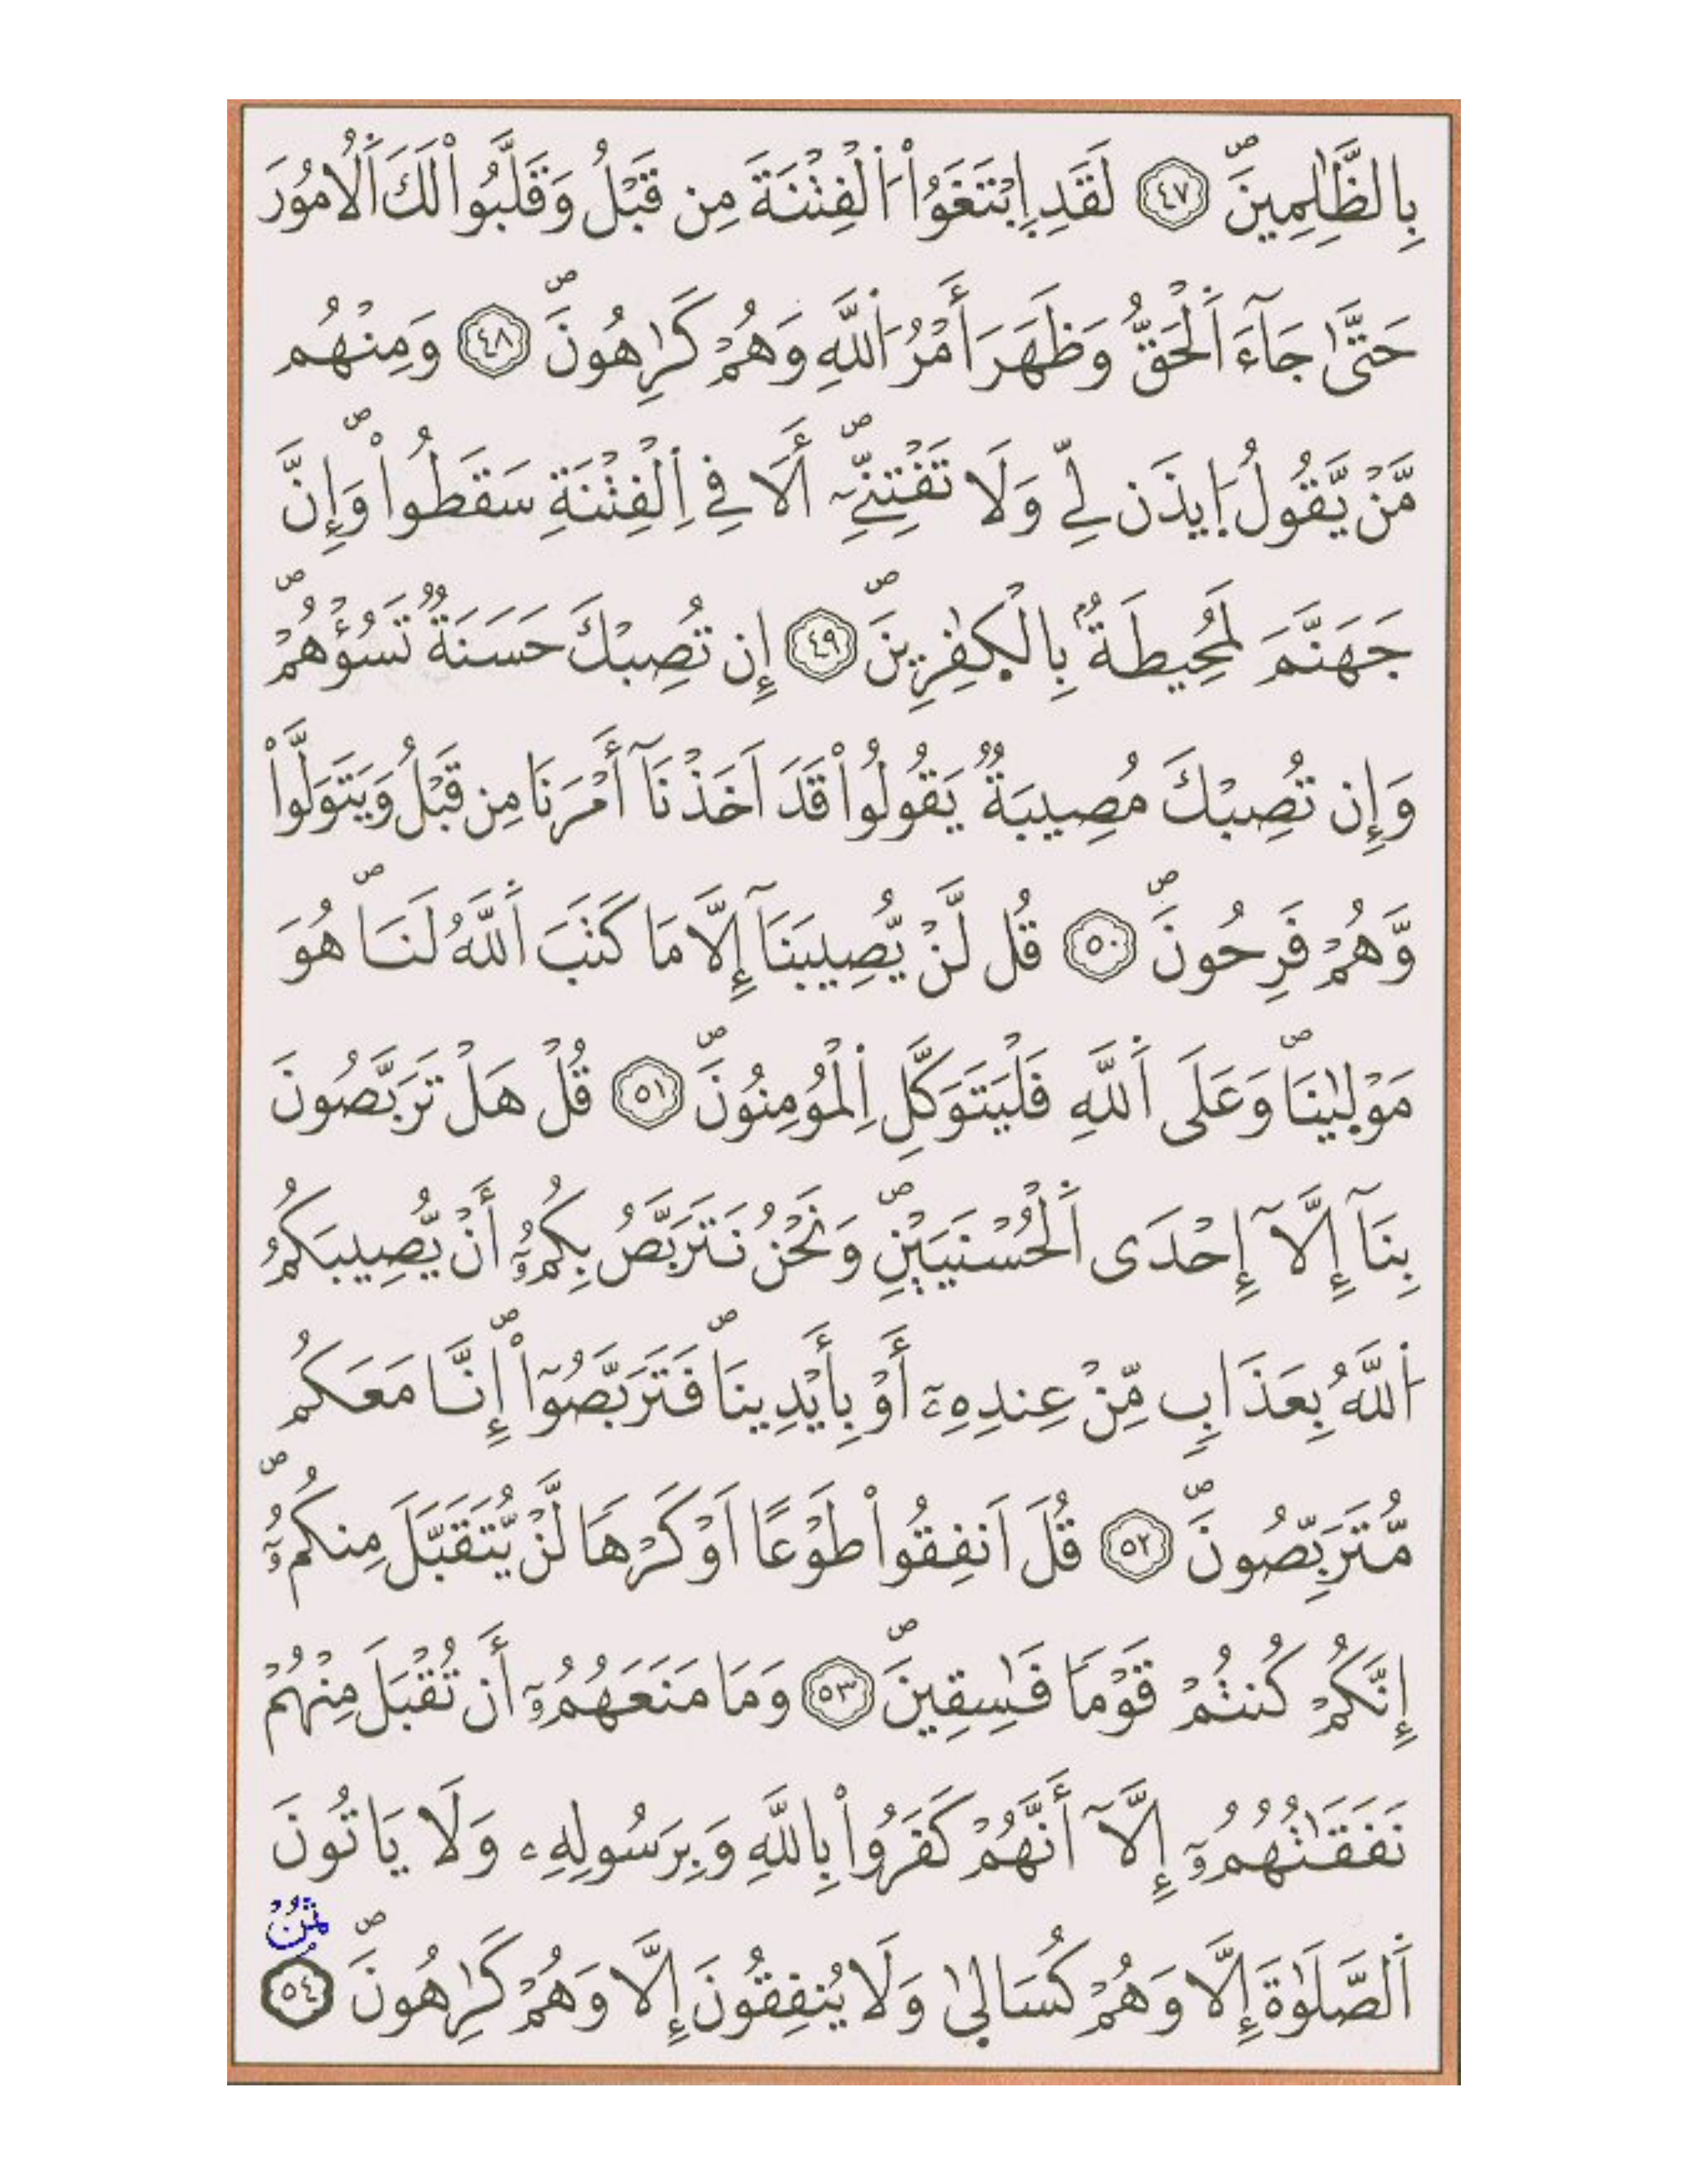 بِالظَّٰلِمِينَۖ ٤٧ لَقَدِ اِ۪بْتَغَوُاْ اُ۬لْفِتْنَةَ مِن قَبْلُ وَقَلَّبُواْ لَكَ اَ۬لُامُورَ
حَتَّىٰ جَآءَ اَ۬لْحَقُّ وَظَهَرَ أَمْرُ اُ۬للَّهِ وَهُمْ كَٰرِهُونَۖ ٤٨ وَمِنْهُم
مَّنْ يَّقُولُ اُ۪يذَن لِّے وَلَا تَفْتِنِّےٓۖ أَلَا فِے اِ۬لْفِتْنَةِ سَقَطُواْۖ وَإِنَّ
جَهَنَّمَ لَمُحِيطَةُۢ بِالْكٰ۪فِرِينَۖ ٤٩ إِن تُصِبْكَ حَسَنَةٌ تَسُؤْهُمْۖ
وَإِن تُصِبْكَ مُصِيبَةٌ يَقُولُواْ قَدَ اَخَذْنَآ أَمْرَنَا مِن قَبْلُ وَيَتَوَلَّواْ
وَّهُمْ فَرِحُونَۖ ٥٠ قُل لَّنْ يُّصِيبَنَآ إِلَّا مَا كَتَبَ اَ۬للَّهُ لَنَاۖ هُوَ
مَوْل۪يٰنَاۖ وَعَلَى اَ۬للَّهِ فَلْيَتَوَكَّلِ اِ۬لْمُومِنُونَۖ ٥١ قُلْ هَلْ تَرَبَّصُونَ
بِنَآ إِلَّآ إِحْدَى اَ۬لْحُسْنَيَيْنِۖ وَنَحْنُ نَتَرَبَّصُ بِكُمُۥٓ أَنْ يُّصِيبَكُمُ
اُ۬للَّهُ بِعَذَابٖ مِّنْ عِندِهِۦٓ أَوْ بِأَيْدِينَاۖ فَتَرَبَّصُوٓاْۖ إِنَّا مَعَكُم
مُّتَرَبِّصُونَۖ ٥٢ قُلَ اَنفِقُواْ طَوْعاً اَوْ كَرْهاٗ لَّنْ يُّتَقَبَّلَ مِنكُمُۥٓۖ
إِنَّكُمْ كُنتُمْ قَوْماٗ فَٰسِقِينَۖ ٥٣ وَمَا مَنَعَهُمُۥٓ أَن تُقْبَلَ مِنْهُمْ
نَفَقَٰتُهُمُۥٓ إِلَّآ أَنَّهُمْ كَفَرُواْ بِاللَّهِ وَبِرَسُولِهِۦ وَلَا يَاتُونَ
ثمن
اَ۬لصَّلَوٰةَ إِلَّا وَهُمْ كُسَال۪يٰ وَلَا يُنفِقُونَ إِلَّا وَهُمْ كَٰرِهُونَۖ ٥٤